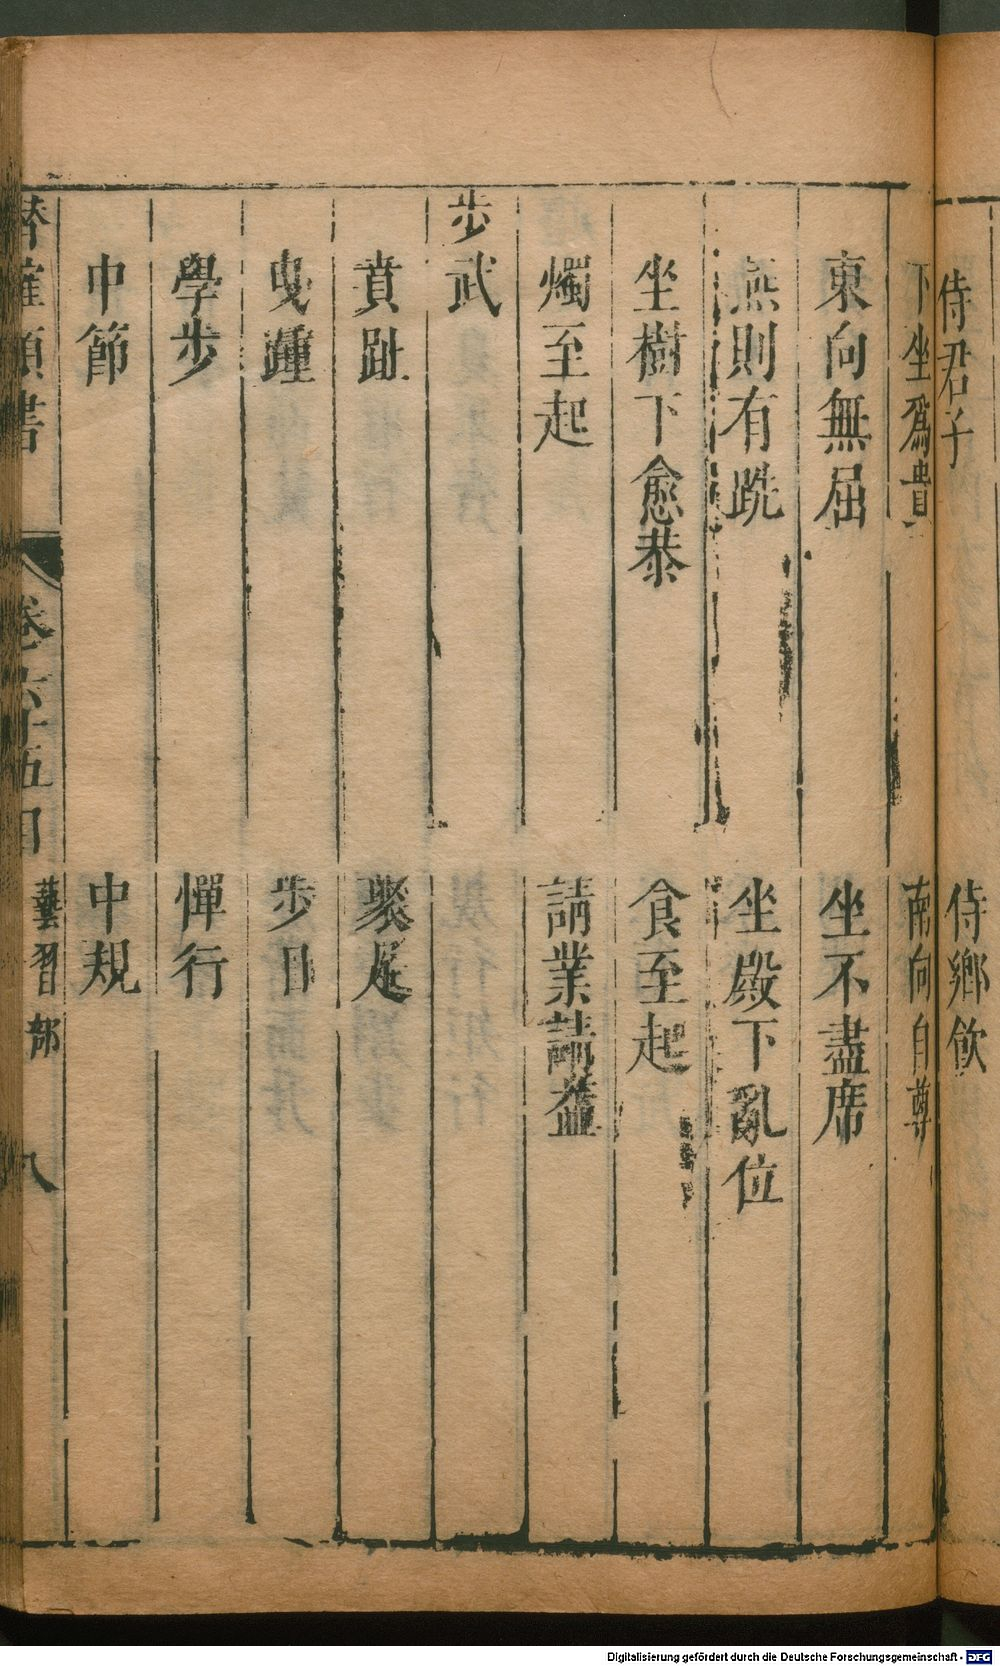 侍君子 侍鄉飲
下坐爲貴 南向自尊
東向無屈 坐不盡席
燕則有跣 坐殿下亂位
坐樹下愈恭 食至起
燭至起 請業請益
步武
賁趾 聚足
曳踵 步日
學步 憚行
中節 中規
類書 卷六十五目 藝習部 八
Digitalisierung gefördert durch die Deutsche Forschungsgemeinschaft - DFG